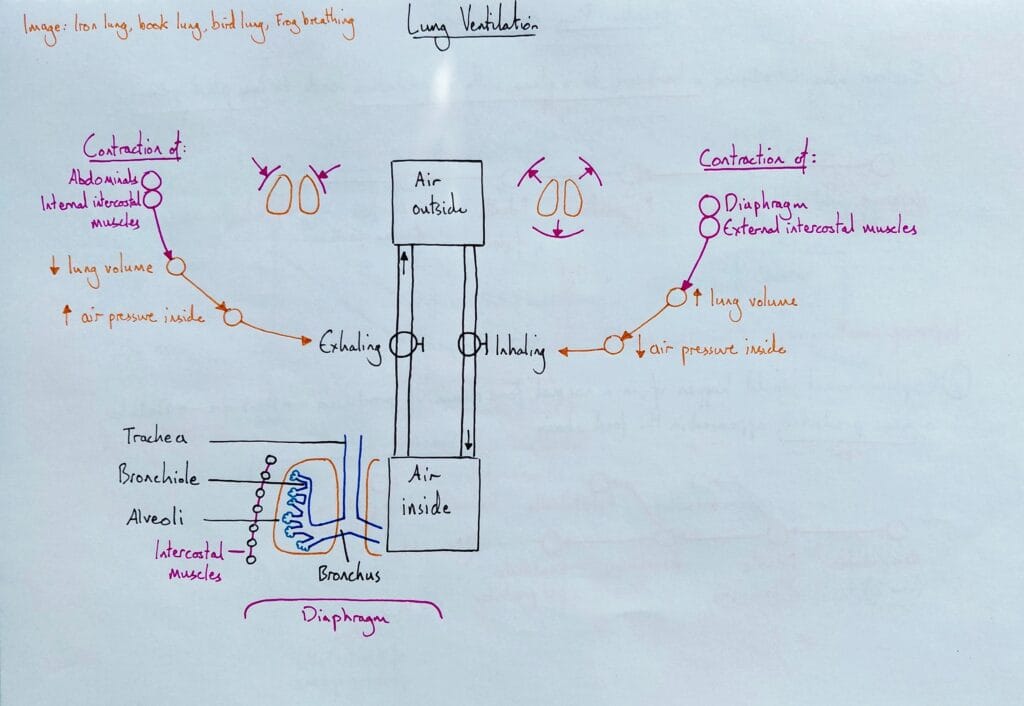 Image: Iron lung, book lung, bird lung, Frog breathing
Lung Ventilation
Contraction of:
Abdominals
Internal intercostal
muscles
↓ lung volume
↑ air pressure inside
Exhaling
Air
outside
Inhaling
Contraction of:
Diaphragm
External intercostal muscles
↑ lung volume
↓ air pressure inside
Trachea
Bronchiole
Alveoli
Intercostal
Muscles
Bronchus
Diaphragm
Air
inside